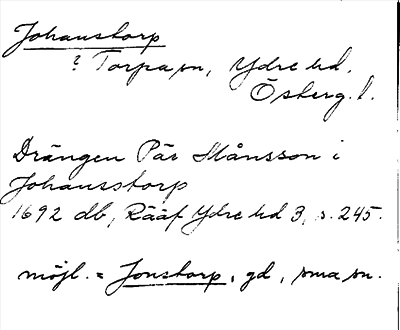 Johanstorp
? Torpa sn, Ydre hd.
Österg. l.
Drängen Pär Månsson i
Johansstorp
1692 db, Rääf Ydre hd 3, s. 245.
möjl. = Jonstorp, gd, sma sn.